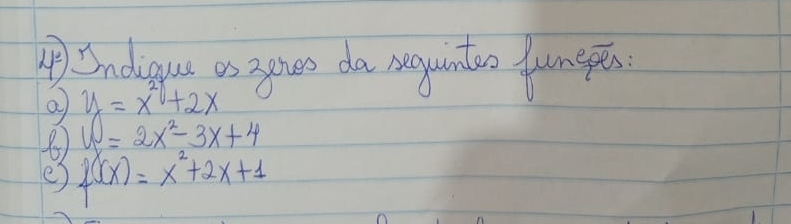 4º) Indique os zeros da seguintes funções:
a) y = x² + 2x
b) y = 2x² - 3x + 4
c) f(x) = x² + 2x + 1